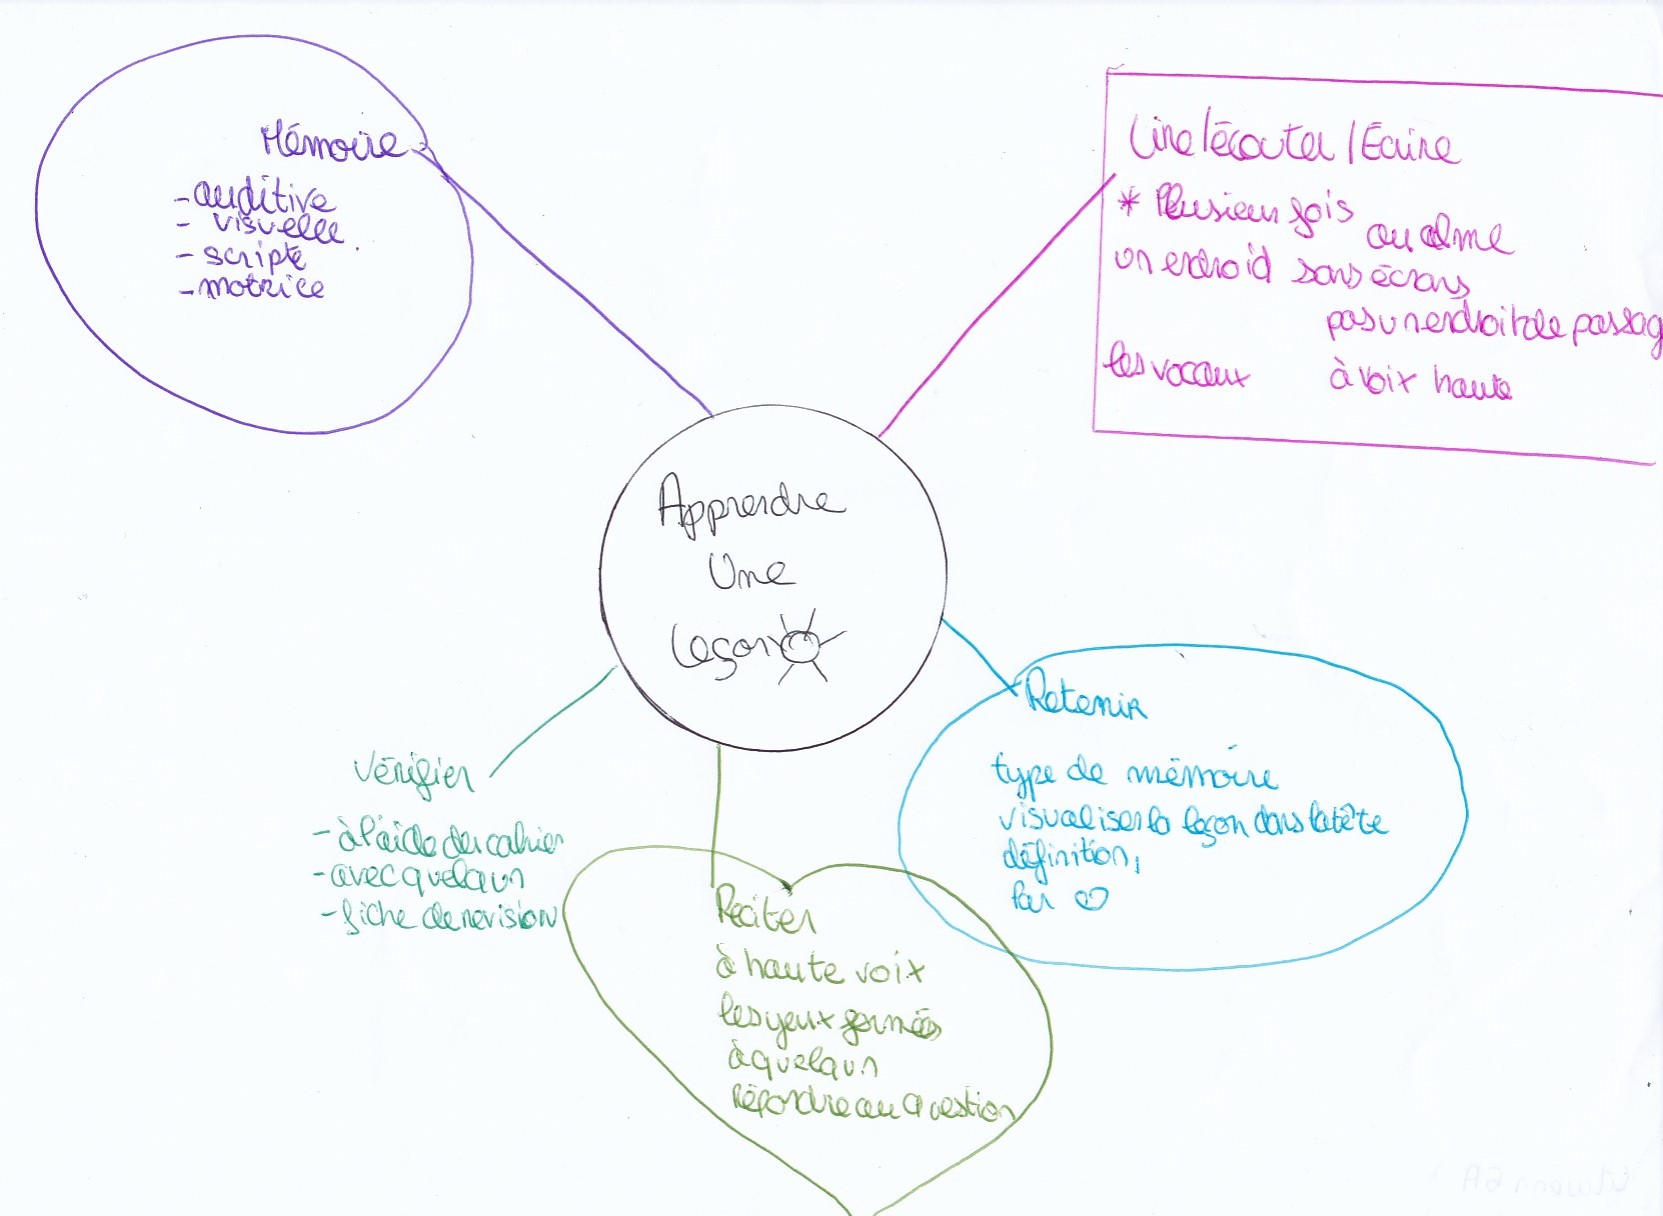 Mémoire
- auditive
- visuelle
- scripte
- motrice
Lire/écouter/Ecrire
* Plusieur fois
au calme
un endroid sans écrans
pas un endroit de passag
les vocaux à voix haute
Apprendre
Une
Leçon
Retenir
type de mémoire
visualiser la leçon dans la tête
définition,
Par
Vérifier
- à l'aide du cahier
- avec quelqun
- fiche de revision
Réciter
à haute voix
les yeux fermés
à quelqun
Répondre au question